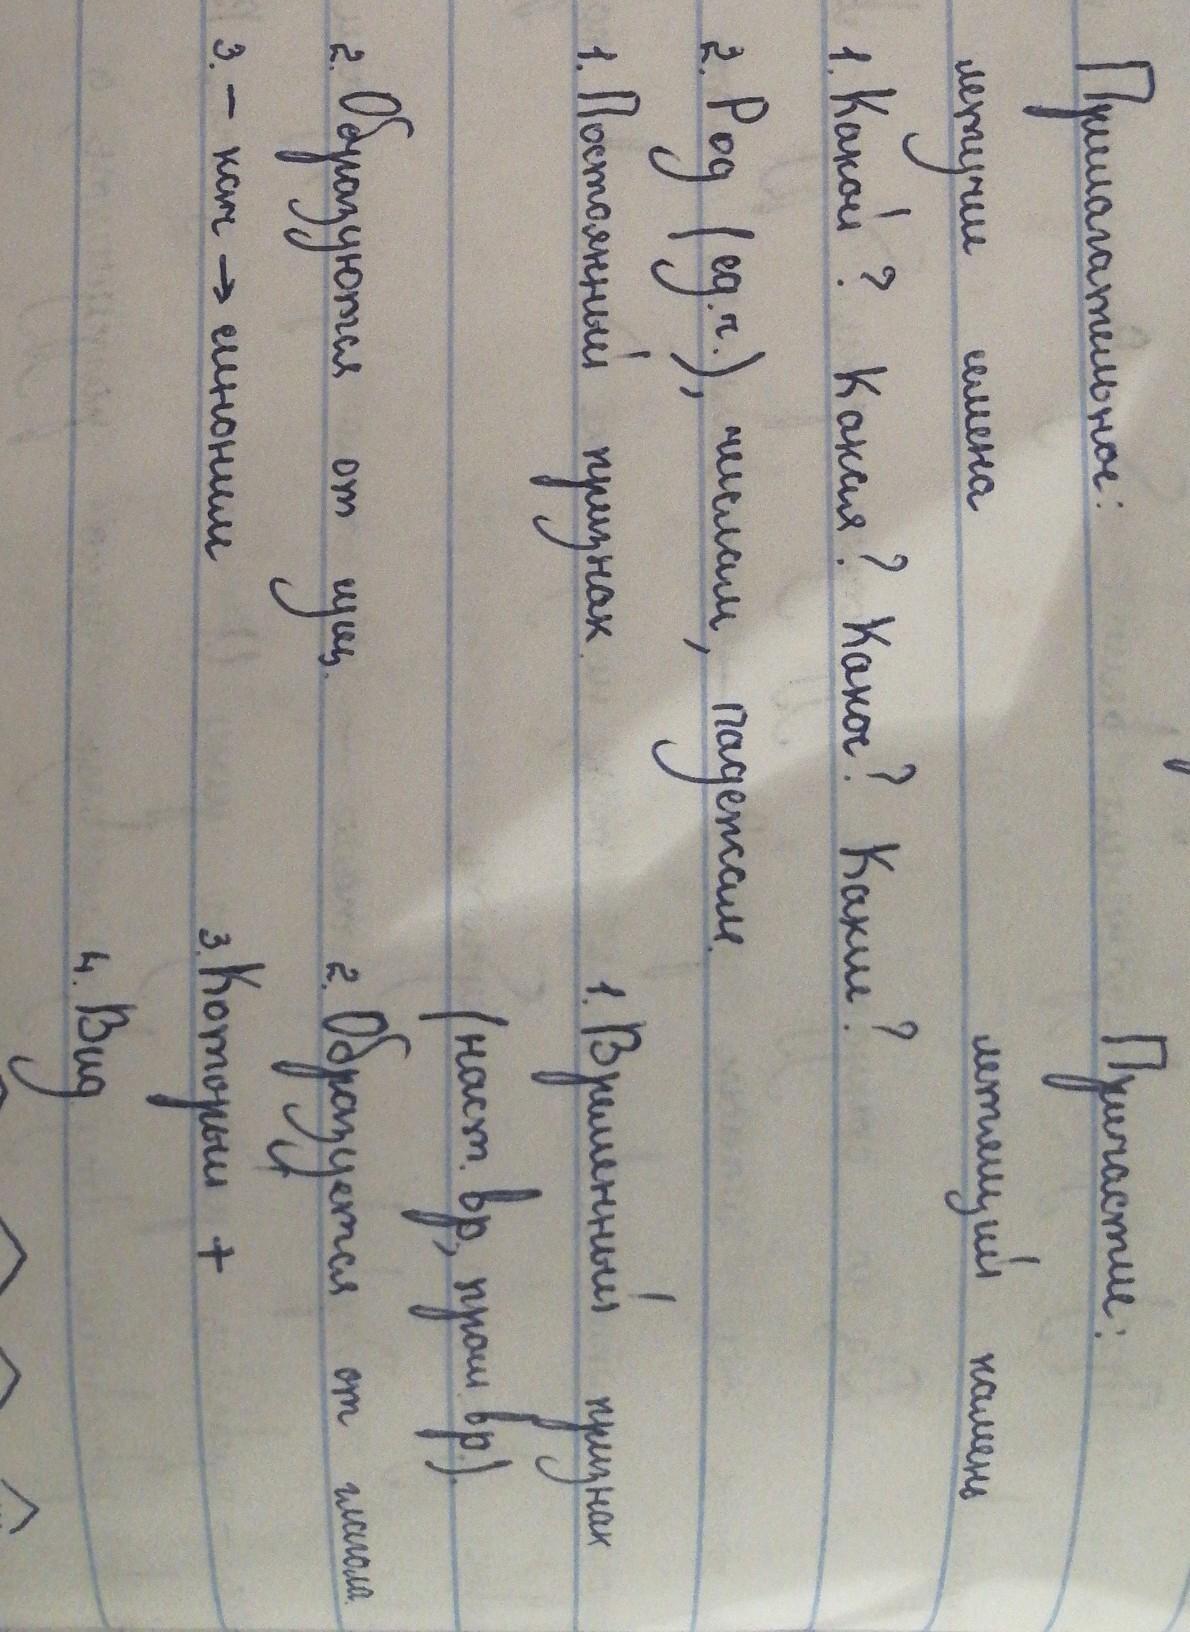 Прилагательное: Причастие:
летучие семена летящий камень
1. Какой? Какая? Какое? Какие?
2. Род (ед.ч.), числам, падежам.
1. Постоянный признак 1. Временный признак
(наст. вр., прош. вр.).
2. Образуются от сущ. 2. Образуется от глагола
3. – кот → синоним 3. Который +
4. Вид